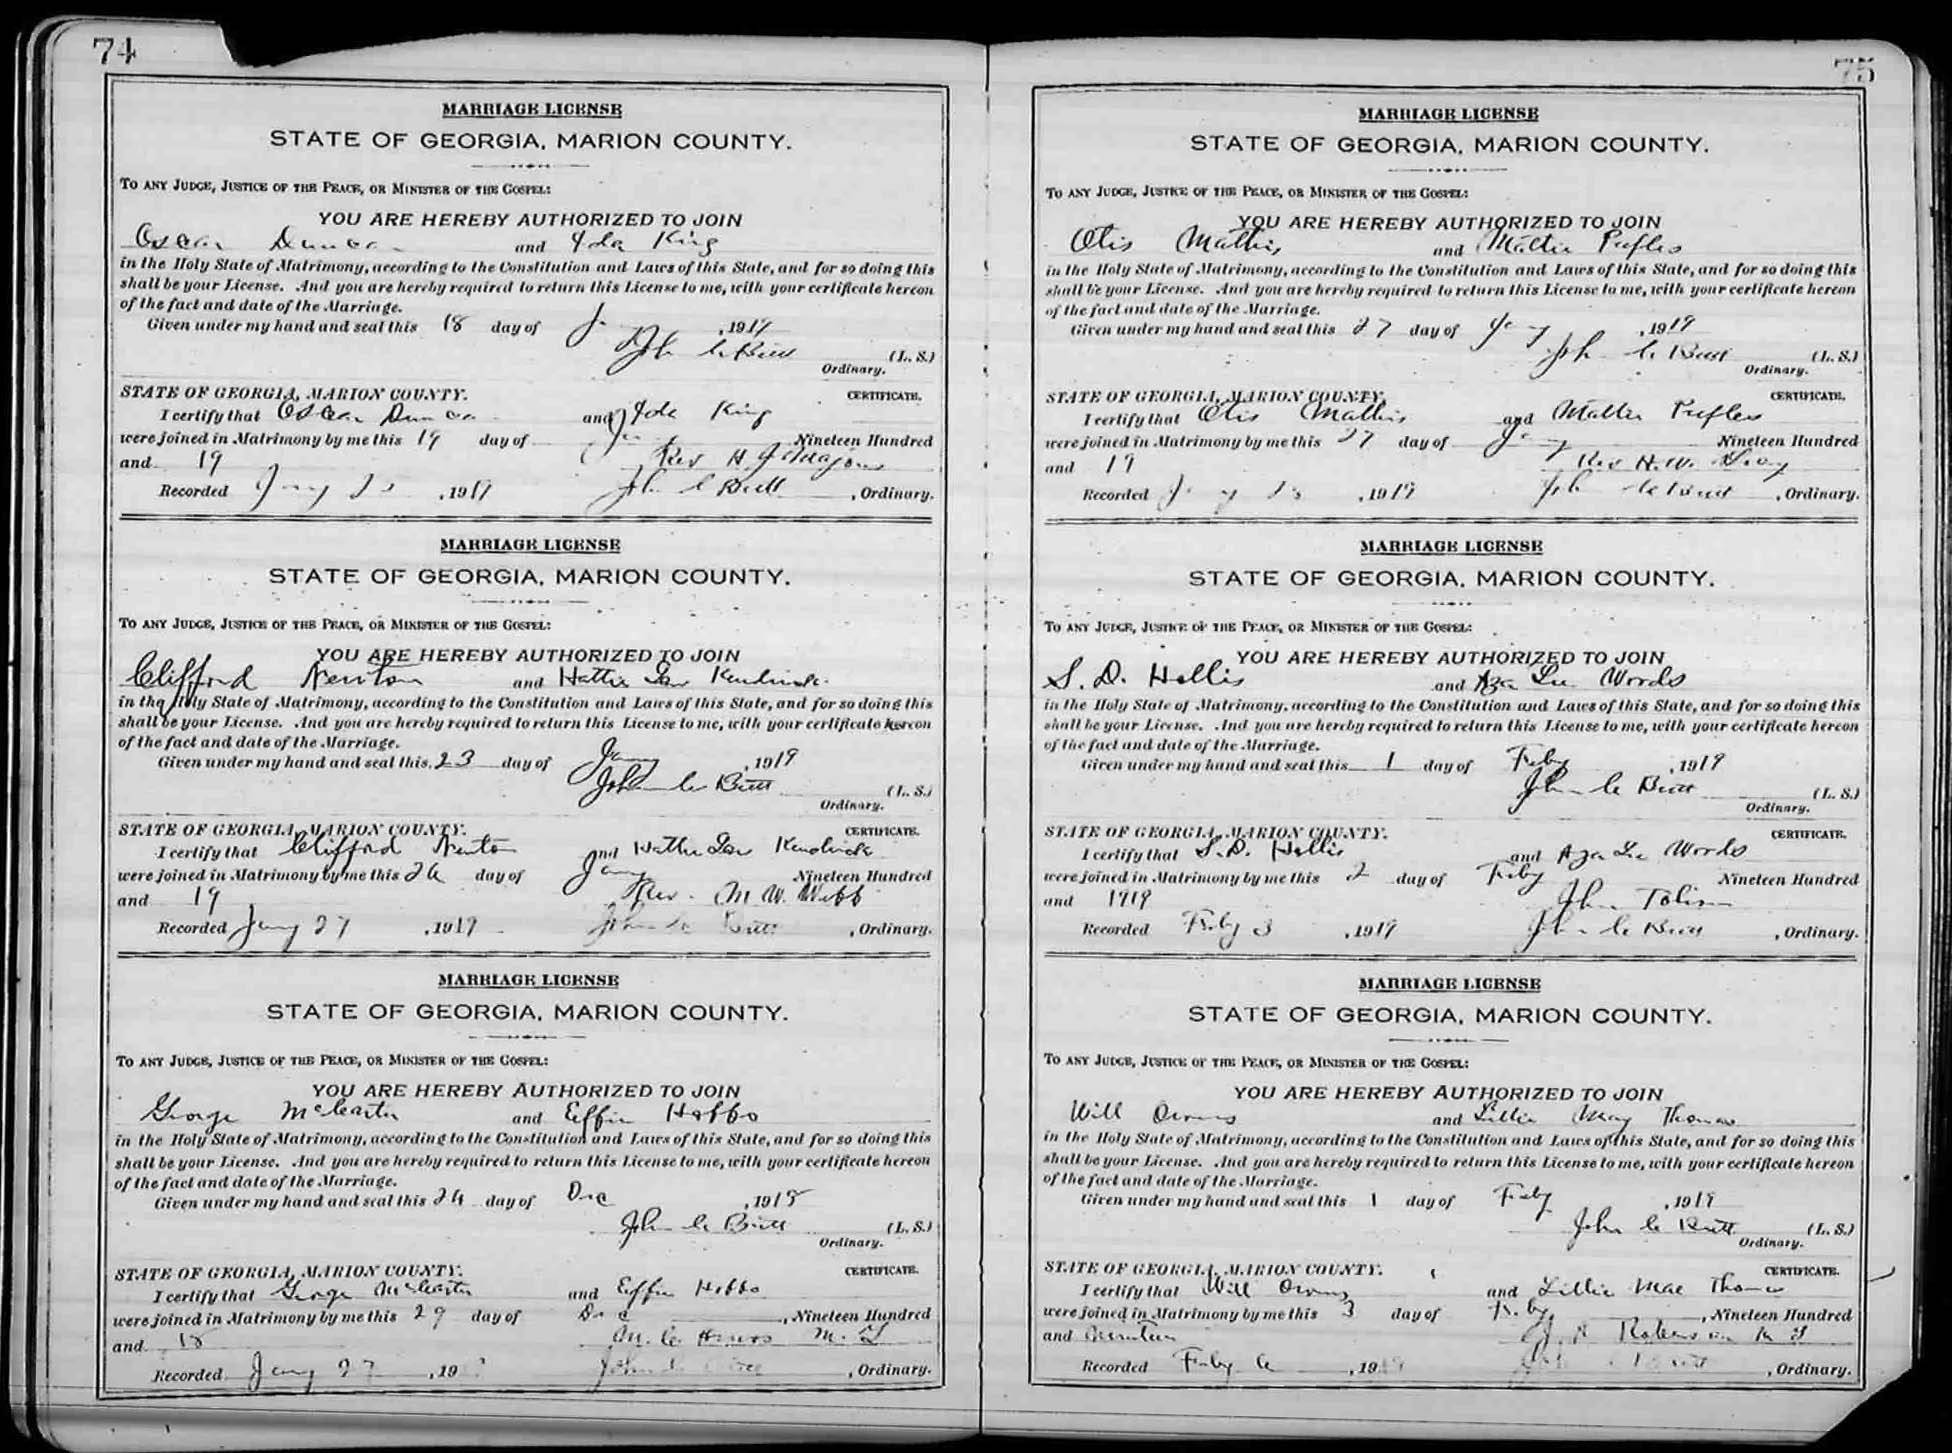 74
MARRIAGE LICENSE
STATE OF GEORGIA, MARION COUNTY.
TO ANY JUDGE, JUSTICE OF THE PEACE, OR MINISTER OF THE GOSPEL:
YOU ARE HEREBY AUTHORIZED TO JOIN
Oscar Duncan and Ida King
in the Holy State of Matrimony, according to the Constitution and Laws of this State, and for so doing this
shall be your License. And you are hereby required to return this License to me, with your certificate hereon
of the fact and date of the Marriage.
Given under my hand and seal this 18 day of , 1919
John C Butt (L. S.)
Ordinary.
STATE OF GEORGIA, MARION COUNTY. CERTIFICATE.
I certify that Oscar Duncan and Ida King
were joined in Matrimony by me this 19 day of Nineteen Hundred
and 19 Rev H J
Recorded Jany , 1919 John C Butt , Ordinary.
MARRIAGE LICENSE
STATE OF GEORGIA, MARION COUNTY.
TO ANY JUDGE, JUSTICE OF THE PEACE, OR MINISTER OF THE GOSPEL:
YOU ARE HEREBY AUTHORIZED TO JOIN
Clifford Newton and Hattie
in the Holy State of Matrimony, according to the Constitution and Laws of this State, and for so doing this
shall be your License. And you are hereby required to return this License to me, with your certificate hereon
of the fact and date of the Marriage.
Given under my hand and seal this 23 day of Jany , 1919
John C Butt (L. S.)
Ordinary.
STATE OF GEORGIA, MARION COUNTY. CERTIFICATE.
I certify that Clifford Newton and Hattie
were joined in Matrimony by me this day of Jany Nineteen Hundred
and 19 Rev. M W. Webb
Recorded Jany 27 , 1919 John C Butt , Ordinary.
MARRIAGE LICENSE
STATE OF GEORGIA, MARION COUNTY.
TO ANY JUDGE, JUSTICE OF THE PEACE, OR MINISTER OF THE GOSPEL:
YOU ARE HEREBY AUTHORIZED TO JOIN
George McCarter and Effie Hobbs
in the Holy State of Matrimony, according to the Constitution and Laws of this State, and for so doing this
shall be your License. And you are hereby required to return this License to me, with your certificate hereon
of the fact and date of the Marriage.
Given under my hand and seal this 24 day of Dec , 1918
John C Butt (L. S.)
Ordinary.
STATE OF GEORGIA, MARION COUNTY. CERTIFICATE.
I certify that George McCarter and Effie Hobbs
were joined in Matrimony by me this 29 day of Dec , Nineteen Hundred
and 18 M. C. M. G
Recorded Jany 27 , 19 John C , Ordinary.
75
MARRIAGE LICENSE
STATE OF GEORGIA, MARION COUNTY.
TO ANY JUDGE, JUSTICE OF THE PEACE, OR MINISTER OF THE GOSPEL:
YOU ARE HEREBY AUTHORIZED TO JOIN
Otis Mathis and Mattie Peeples
in the Holy State of Matrimony, according to the Constitution and Laws of this State, and for so doing this
shall be your License. And you are hereby required to return this License to me, with your certificate hereon
of the fact and date of the Marriage.
Given under my hand and seal this 27 day of Jany , 1919
John C Butt (L. S.)
Ordinary.
STATE OF GEORGIA, MARION COUNTY. CERTIFICATE.
I certify that Otis Mathis and Mattie Peeples
were joined in Matrimony by me this 27 day of Jany Nineteen Hundred
and 19 Rev H. W.
Recorded Jany , 1919 John C Butt , Ordinary.
MARRIAGE LICENSE
STATE OF GEORGIA, MARION COUNTY.
TO ANY JUDGE, JUSTICE OF THE PEACE, OR MINISTER OF THE GOSPEL:
YOU ARE HEREBY AUTHORIZED TO JOIN
S. D. Hollis and Aza Lee Woods
in the Holy State of Matrimony, according to the Constitution and Laws of this State, and for so doing this
shall be your License. And you are hereby required to return this License to me, with your certificate hereon
of the fact and date of the Marriage.
Given under my hand and seal this 1 day of Feby , 1919
John C Butt (L. S.)
Ordinary.
STATE OF GEORGIA, MARION COUNTY. CERTIFICATE.
I certify that S. D. Hollis and Aza Lee Woods
were joined in Matrimony by me this 2 day of Feby Nineteen Hundred
and 1919 John
Recorded Feby 3 , 1919 John C Butt , Ordinary.
MARRIAGE LICENSE
STATE OF GEORGIA, MARION COUNTY.
TO ANY JUDGE, JUSTICE OF THE PEACE, OR MINISTER OF THE GOSPEL:
YOU ARE HEREBY AUTHORIZED TO JOIN
Will Owens and Lillie May Thomas
in the Holy State of Matrimony, according to the Constitution and Laws of this State, and for so doing this
shall be your License. And you are hereby required to return this License to me, with your certificate hereon
of the fact and date of the Marriage.
Given under my hand and seal this 1 day of Feby , 1919
John C Butt (L. S.)
Ordinary.
STATE OF GEORGIA, MARION COUNTY. CERTIFICATE.
I certify that Will Owens and Lillie Mae Thomas
were joined in Matrimony by me this 3 day of Feby , Nineteen Hundred
and Nineteen Roberson M G
Recorded Feby , 19 Butt , Ordinary.